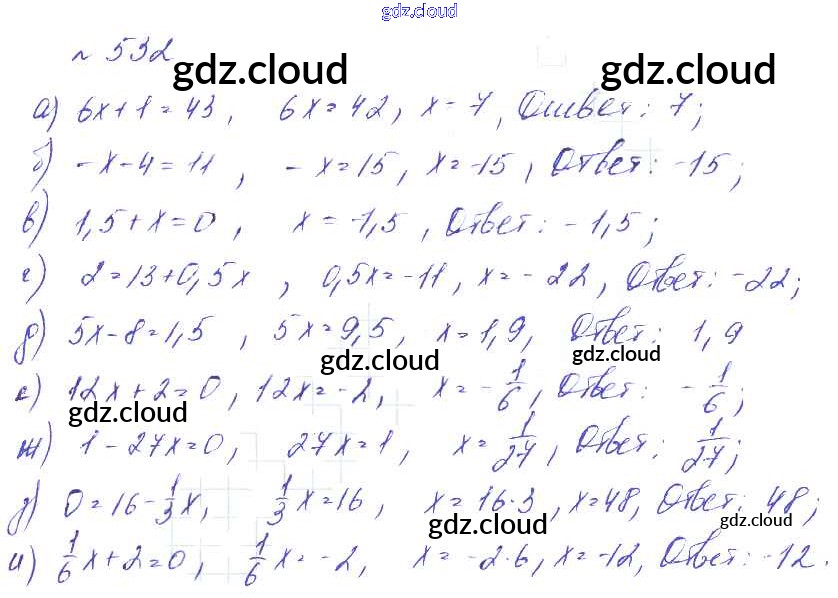 gdz.cloud
№ 532
gdz.cloud gdz.cloud
а) 6x+1=43, 6x=42, x=7, Ответ: 7;
б) -x-4=11, -x=15, x=-15, Ответ: -15;
в) 1,5+x=0, x=-1,5, Ответ: -1,5;
г) 2=13+0,5x, 0,5x=-11, x=-22, Ответ: -22;
д) 5x-8=1,5, 5x=9,5, x=1,9, Ответ: 1,9
gdz.cloud gdz.cloud
е) 12x+2=0, 12x=-2, x=-1/6, Ответ: -1/6;
gdz.cloud
ж) 1-27x=0, 27x=1, x=1/27, Ответ: 1/27;
з) 0=16-1/3x, 1/3x=16, x=16·3, x=48, Ответ: 48;
gdz.cloud gdz.cloud
и) 1/6x+2=0, 1/6x=-2, x=-2·6, x=-12, Ответ: -12.